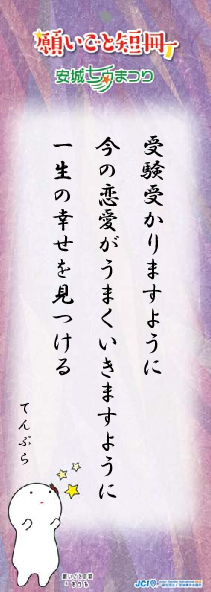 願いごと短冊
安城七夕まつり
受験受かりますように
今の恋愛がうまくいきますように
一生の幸せを見つける
てんぷら
JCI